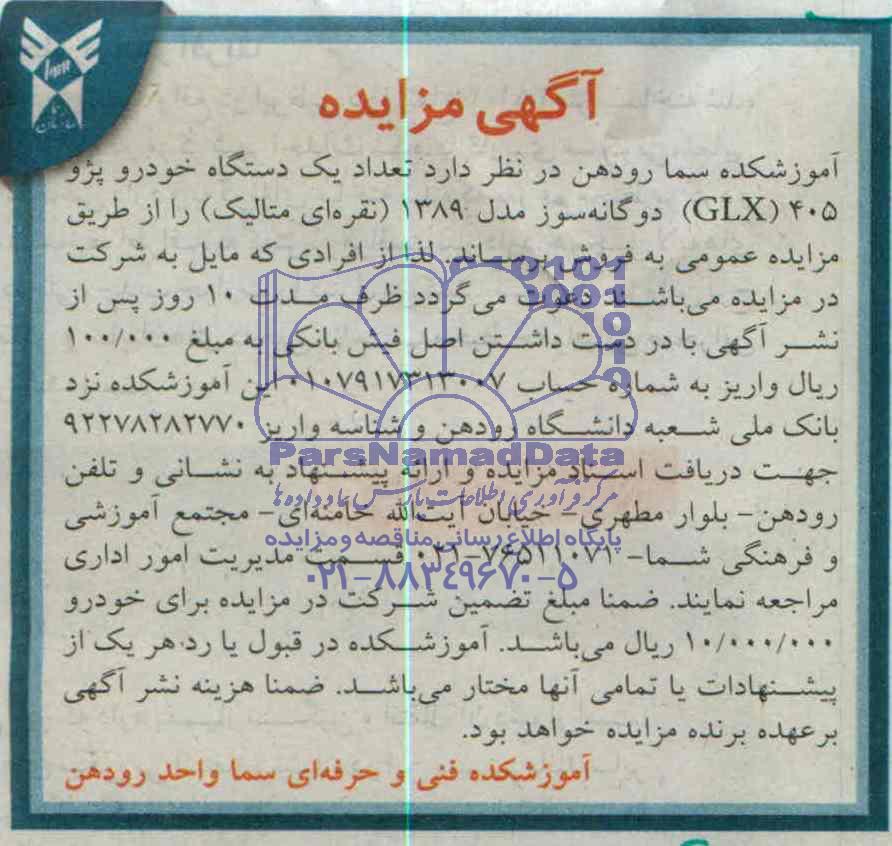 آگهی مزایده
آموزشکده سما رودهن در نظر دارد تعداد یک دستگاه خودرو پژو
۴۰۵ (GLX) دوگانه‌سوز مدل ۱۳۸۹ (نقره‌ای متالیک) را از طریق
مزایده عمومی به فروش برساند. لذا از افرادی که مایل به شرکت
در مزایده می‌باشند دعوت می‌گردد ظرف مدت ۱۰ روز پس از
نشر آگهی با در دست داشتن اصل فیش بانکی به مبلغ ۱۰۰/۰۰۰
ریال واریز به شماره حساب ۰۱۰۷۹۱۷۳۱۳۰۰۷ این آموزشکده نزد
بانک ملی شعبه دانشگاه رودهن و شناسه واریز ۹۲۲۷۸۲۸۲۷۷۰
جهت دریافت اسناد مزایده و ارائه پیشنهاد به نشانی و تلفن
رودهن- بلوار مطهری- خیابان آیت‌الله خامنه‌ای- مجتمع آموزشی
و فرهنگی شما- ۷۶۵۱۱۰۷۱-۰۲۱ قسمت مدیریت امور اداری
مراجعه نمایند. ضمنا مبلغ تضمین شرکت در مزایده برای خودرو
۱۰/۰۰۰/۰۰۰ ریال می‌باشد. آموزشکده در قبول یا رد هر یک از
پیشنهادات یا تمامی آنها مختار می‌باشد. ضمنا هزینه نشر آگهی
برعهده برنده مزایده خواهد بود.
آموزشکده فنی و حرفه‌ای سما واحد رودهن
ParsNamadData
مرکز فرآوری اطلاعات پارس نماد داده ها
پایگاه اطلاع رسانی مناقصه و مزایده
۰۲۱-۸۸۳۴۹۶۷۰-۵